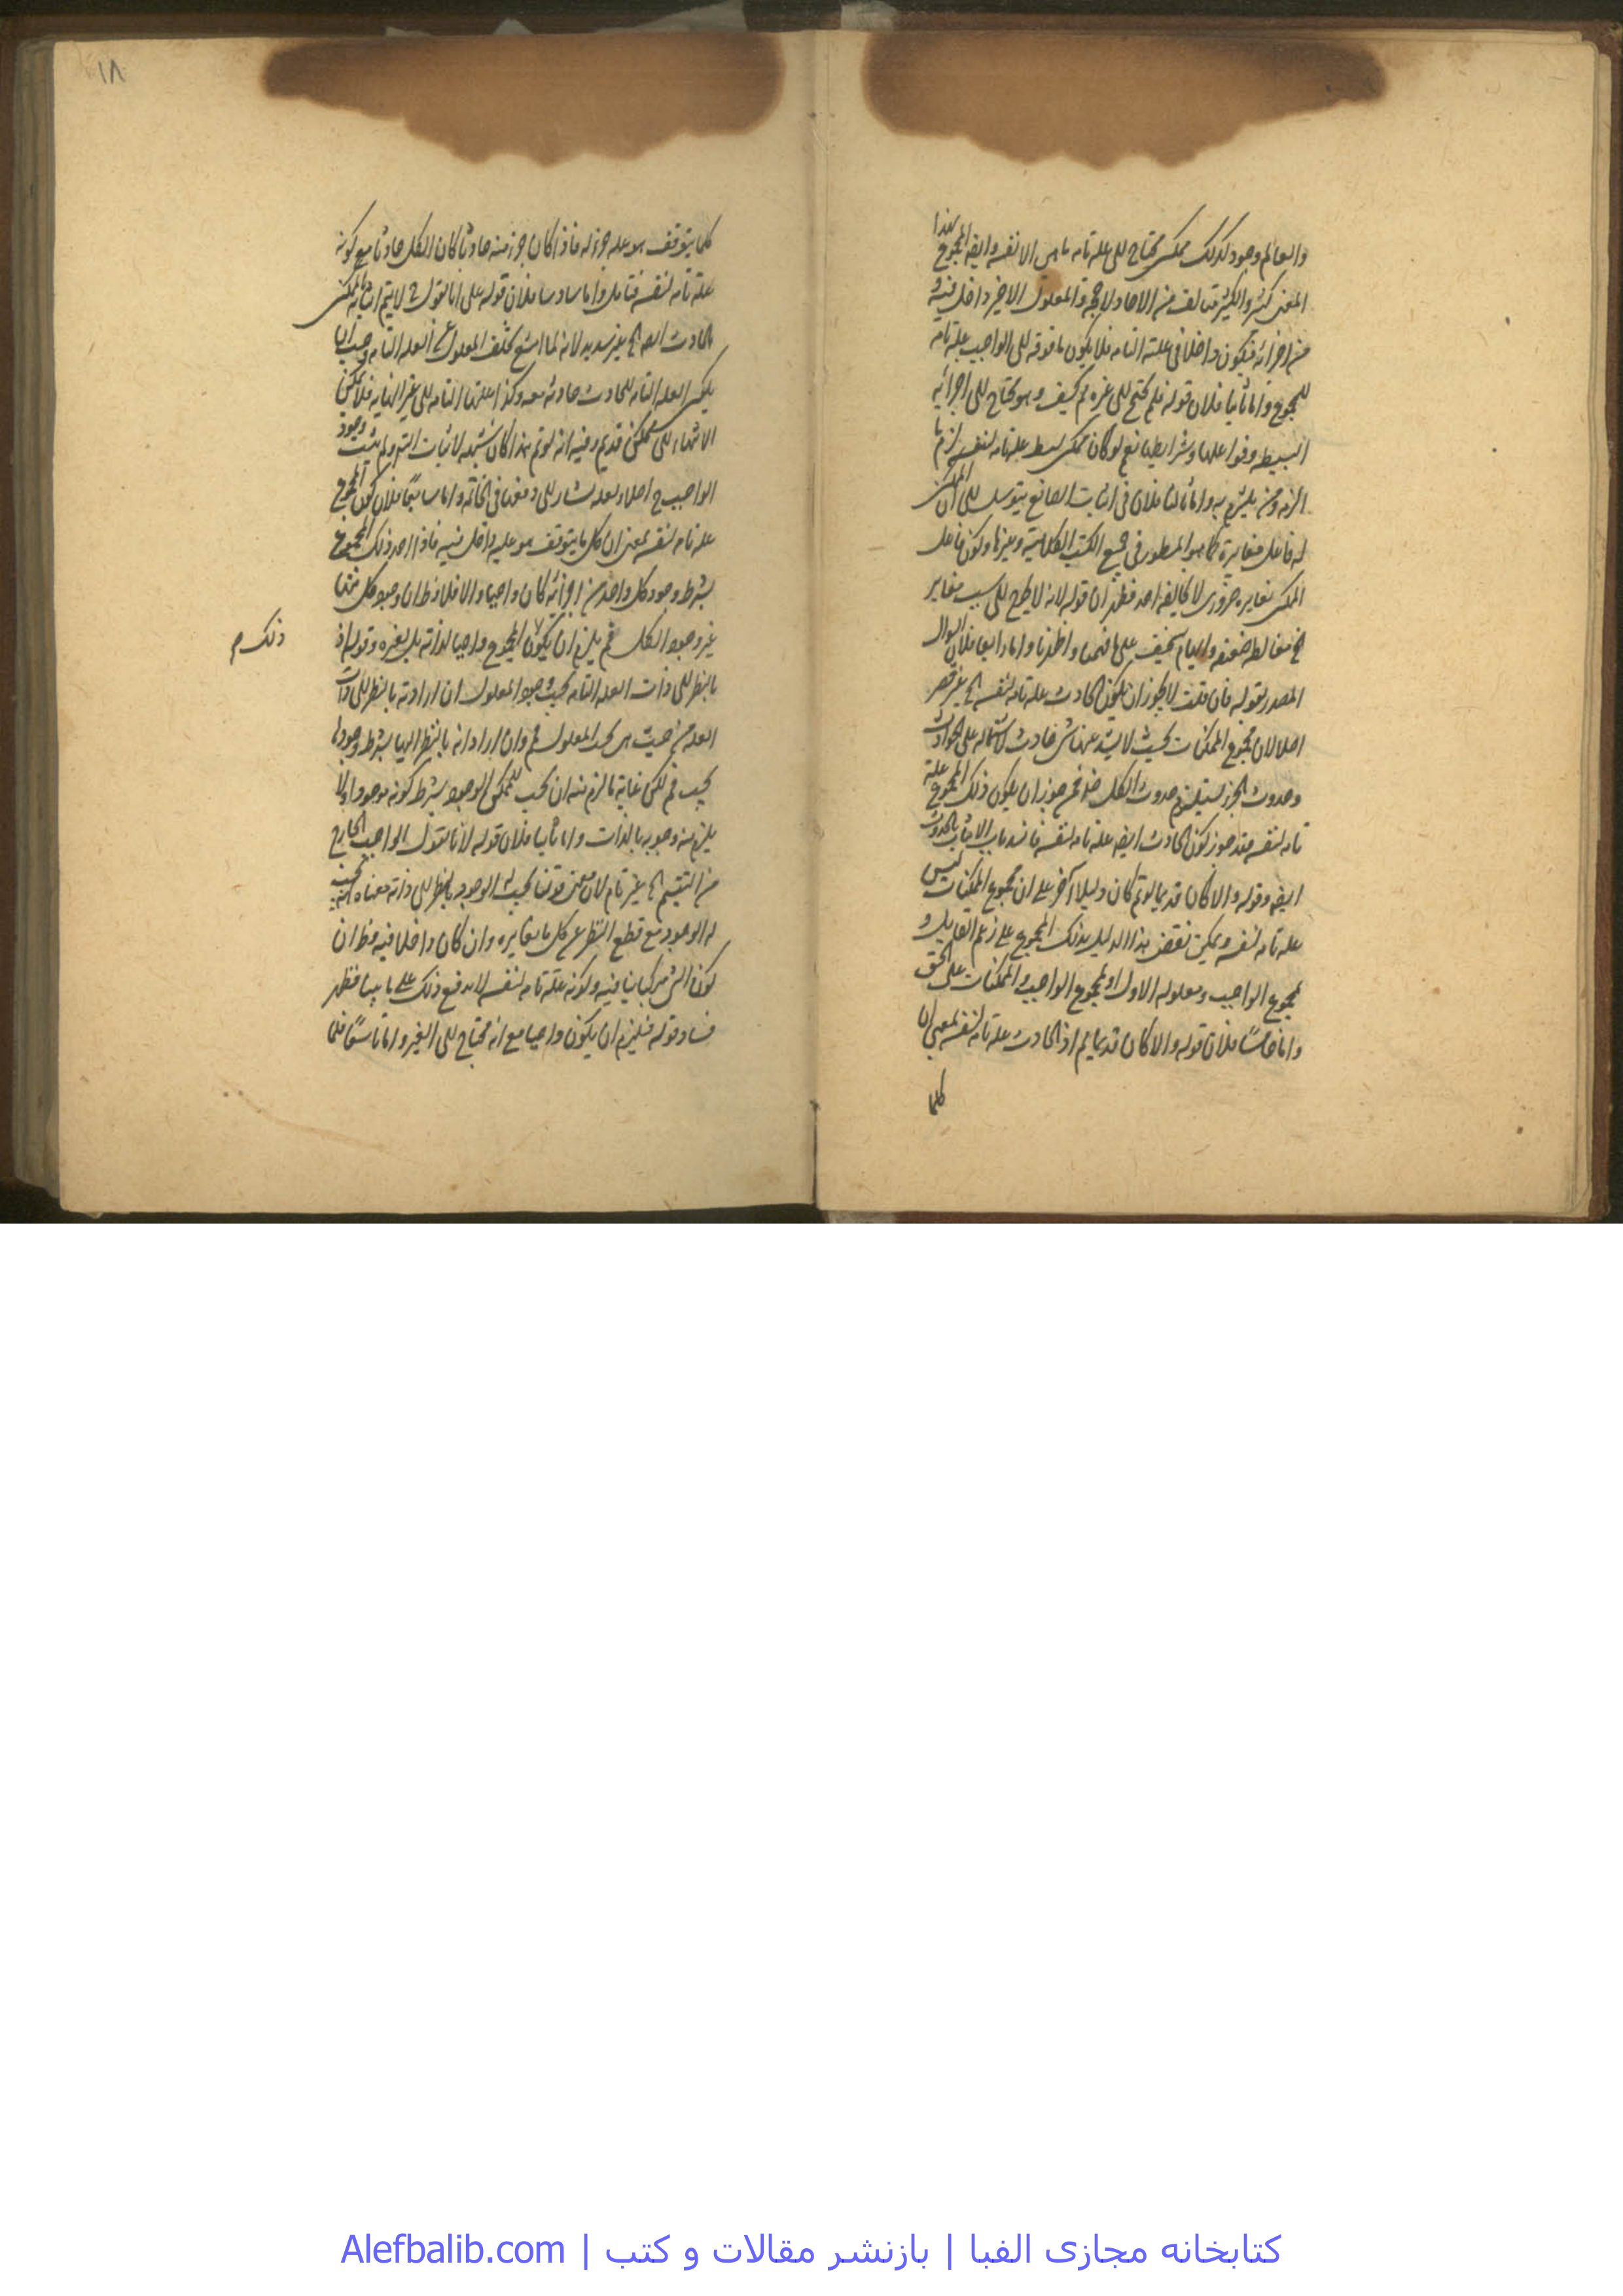 والعالم وجود كذلك ممكن محتاج الى علة تامة ما هى الا نفسه وايضا المجموع بهذا
المعنى كثير والكثير يتألف من الآحاد ولا جهة والمعلول الاخير داخل فيه و
من اجزائه فيكون داخلا فى علته التامة فلا يكون ما فوقه الى الواجب علة تامة
للمجموع واما ثانيا فلان قوله فلم يحتج الى غيره مم كيف وهو محتاج الى اجزائه
البسيطة وفواعلها وشرايطها نعم لو كان ممكن بسيط علة تامة لنفسه لزم ما
الزمه ومن يلتزم به واما ثالثا فلان فى اثبات الصانع يتوسل الى ان الممكن
له فاعل مغايرة كما هو المسطور فى جميع الكتب الكلامية وغيرها وكون فاعل
الممكن مغايره ضرورى لا يخالفه احد فظهر ان قوله لانه لا يحتاج الى سبب مغاير
الخ مغالطة ضعيفة وايهام سخيف على ما فهمنا واظهرنا واما رابعا فلان السؤال
المصدر بقوله فان قلت لا يجوز ان يكون الحادث علة تامة لنفسه الخ غير
اصلا لان مجموع الممكنات بحيث لا يشذ عنها شئ حادث لاشتماله على الحوادث
وحدوث الجزء يستلزم حدوث الكل فمن جوز ان يكون ذلك المجموع علة
تامة لنفسه فقد جوز كون الحادث ايضا علة تامة لنفسه فانسد باب الاثبات بالحدوث
ايضا وقوله والا كان قديما لو تم كان دليلا آخر على ان مجموع الممكنات ليس
علة تامة لنفسه ويمكن نقض هذا الدليل بذلك المجموع على زعم القايل و
مجموع الواجب ومعلوله الاول او مجموع الواجب والممكنات على الحق
واما خامسا فلان قوله والا كان قديما مم اذ الحادث علة تامة لنفسه بمعنى ان
كلما
١٨
كلما يتوقف هو عليه جزء له فاذا كان جزء منه حادثا كان الكل حادثا مع كونه
علة تامة لنفسه فتأمل واما سادسا فلان قوله على انا نقول لا يتم اثباته بالممكن
الحادث ايضا الخ غير سديد لانه لما امتنع تخلف المعلول عن العلة التامة وجب ان
يكون العلة التامة للحادث حادثة معه وكذا علتها التامة الى غير النهاية فلا يمكن
الانتهاء الى ممكن قديم وفيه انه لو تم هذا كان شبهة لاثبات التسلسل ولم يثبت وجود
الواجب ح اصلا ولعله يشار الى دفعها فى الخاتمة واما سابعا فلان كون المجموع
علة تامة لنفسه بمعنى ان كل ما يتوقف هو عليه داخل فيه فاذا اخذ ذلك المجموع
بشرط وجود كل واحد من اجزائه كان واجبا والا فلا وظ ان وجود كل منها
غير وجود الكل فلم يلزم ان يكون المجموع واجبا لذاته بل بغيره وقوله اذ
ذلك م
بالنظر الى ذات العلة التامة يجب وجود المعلول ان اراد به بالنظر الى ذات
العلة من حيث هى يجب المعلول فمم وان اراد انه بالنظر اليها بشرط وجودها
يجب فمم لكن غاية ما لزم منه ان يجب للممكن الوجود بشرط كونه موجودا ولا
يلزم منه وجوبه بالذات واما ثامنا فلان قوله لانا نقول الواجب الخارج
من التقسيم الخ غير تام لان معنى قولنا يجب له الوجود بالنظر الى ذاته معناه انه يجب
له الوجود مع قطع النظر عن كل ما يغايره وان كان داخلا فيه وظ ان
كون الشئ مركبا ينافيه وكونه علة تامة لنفسه لا يدفع ذلك على ما بينا فظهر
فساد قوله فيلزم ان يكون واجبا مع انه محتاج الى الغير واما تاسعا فلما
کتابخانه مجازی الفبا | بازنشر مقالات و کتب | Alefbalib.com